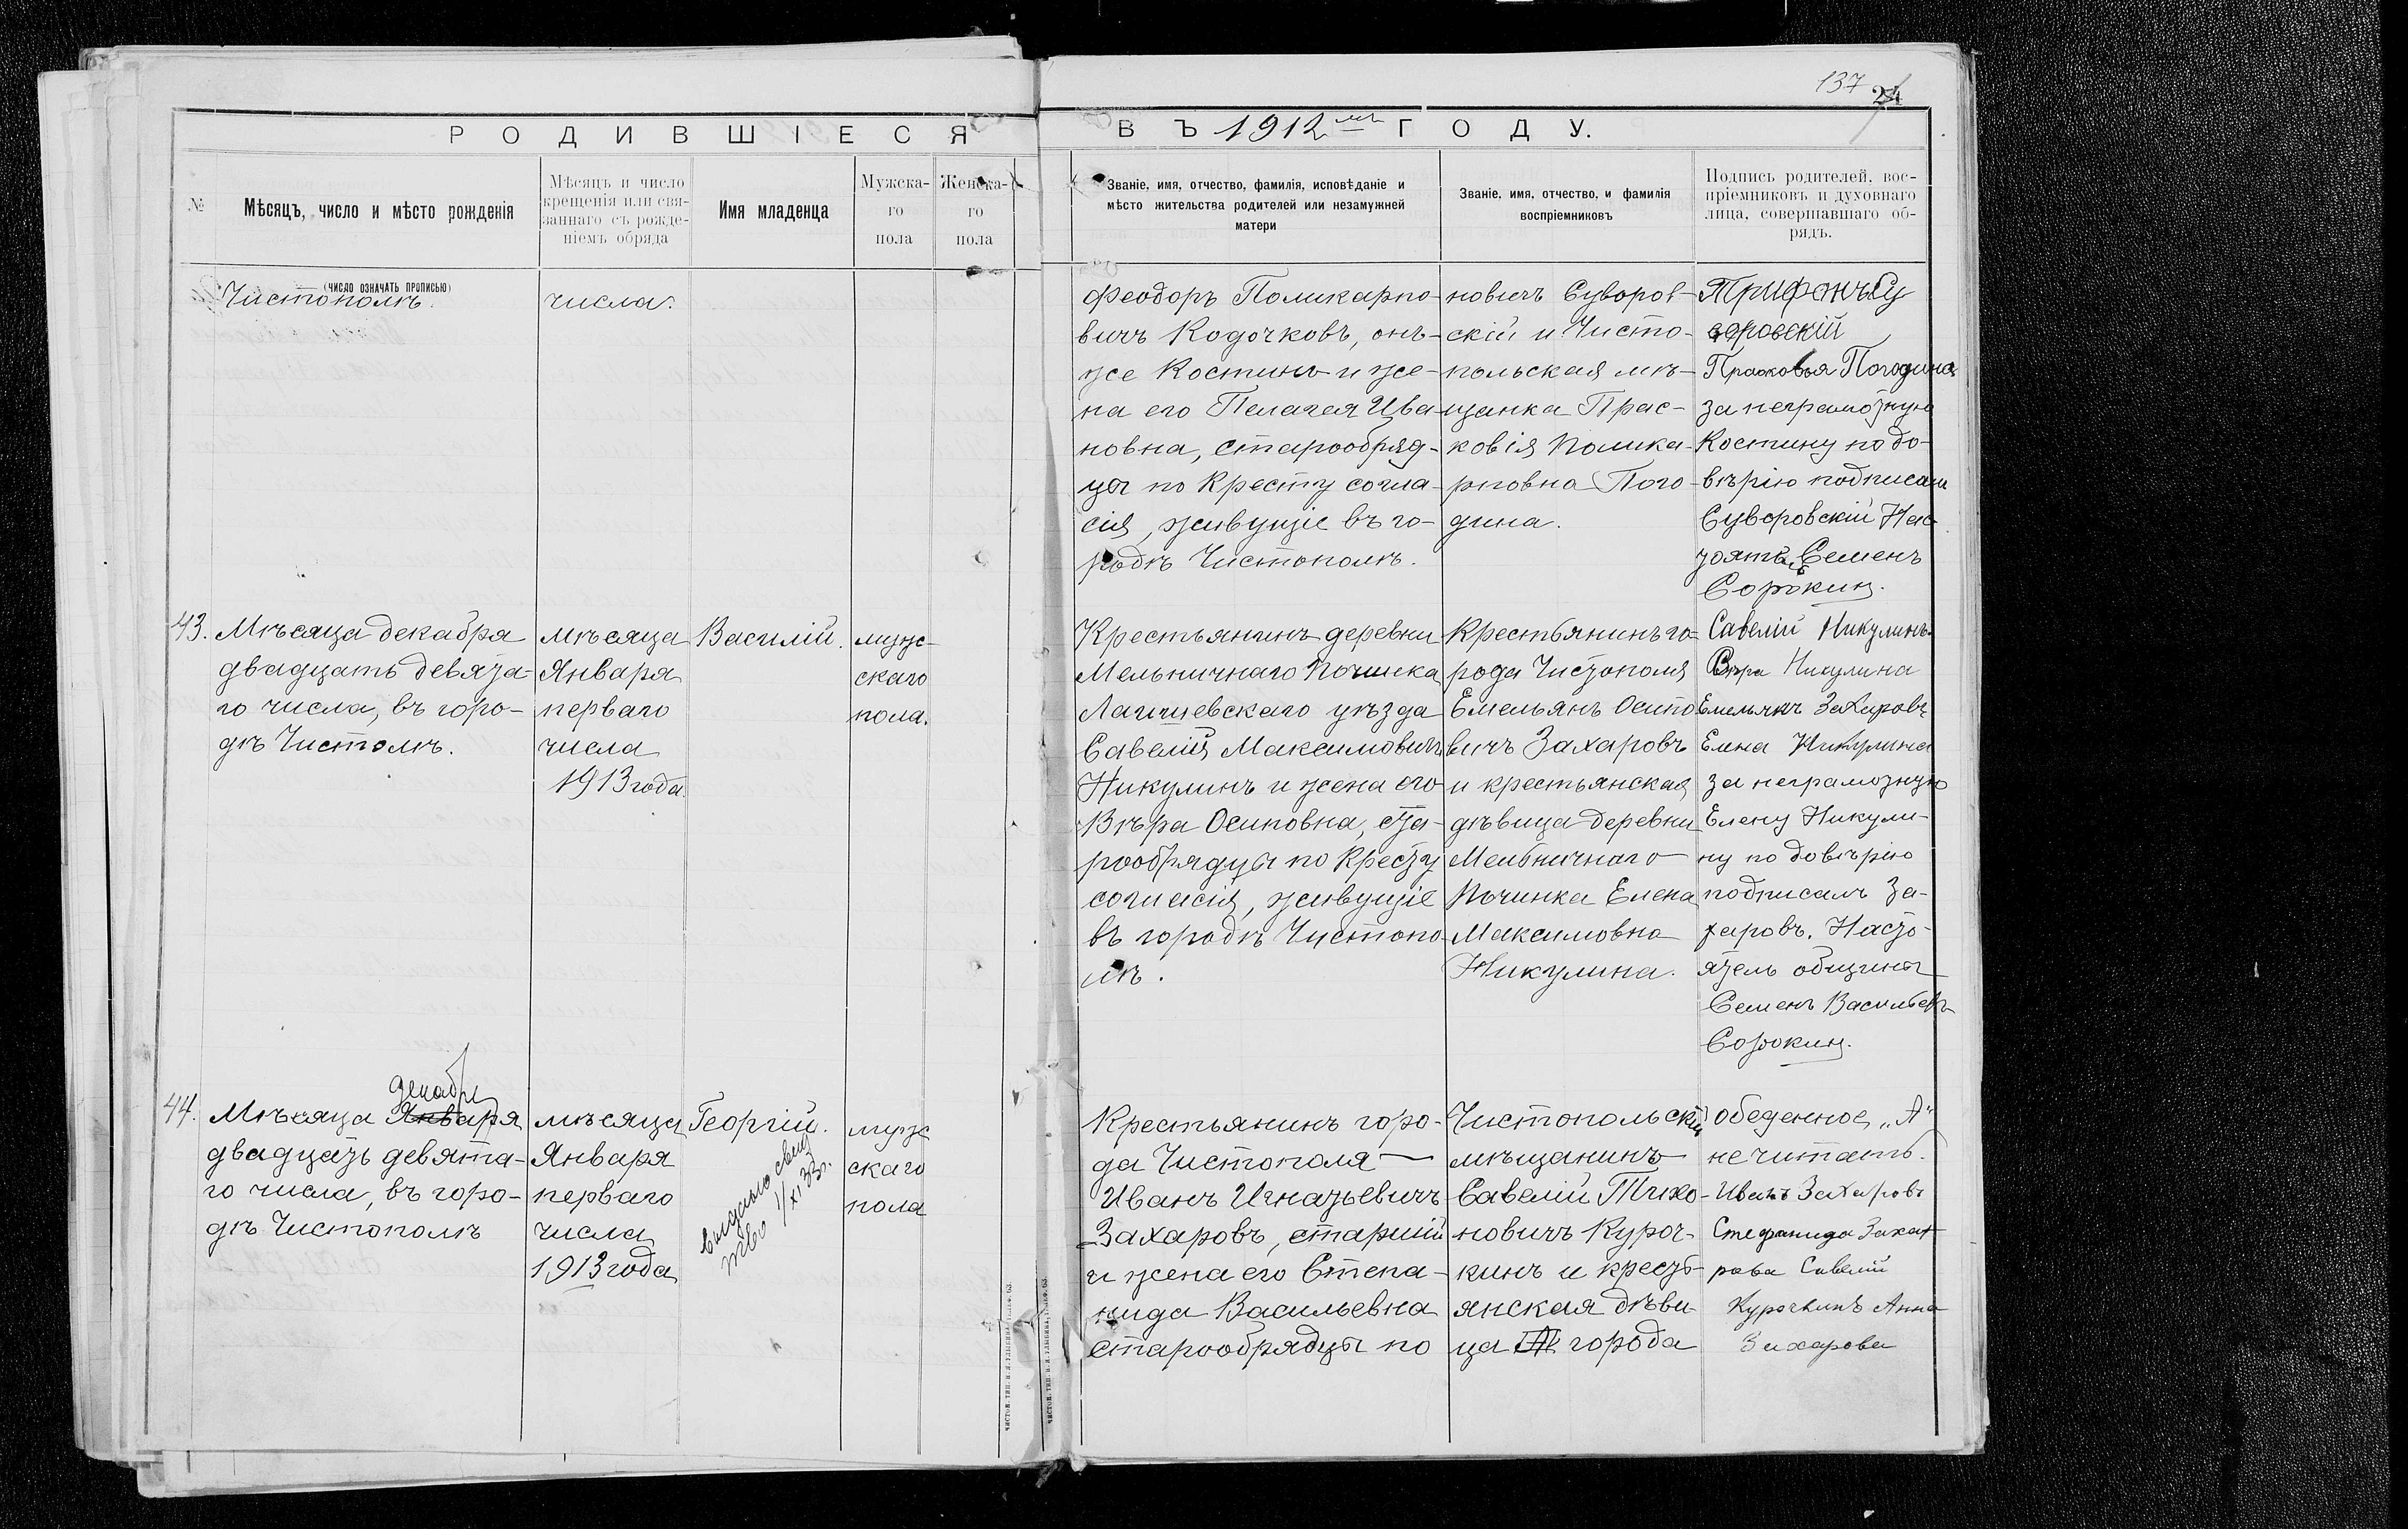 137
24
РОДИВШІЕСЯ
ВЪ 1912мъ ГОДУ.
№
Мѣсяцъ, число и мѣсто рожденія
(число означать прописью)
Мѣсяцъ и число
крещенія или свя-
заннаго съ рожде-
ніемъ обряда
Имя младенца
Мужска-
го
пола
Женска-
го
пола
Званіе, имя, отчество, фамилія, исповѣданіе и
мѣсто жительства родителей или незамужней
матери
Званіе, имя, отчество, и фамилія
воспріемниковъ
Подпись родителей, вос-
пріемниковъ и духовнаго
лица, совершавшаго об-
рядъ.
Чистополѣ.
числа.
Феодоръ Поликарпо-
вичъ Кодочковъ, онъ-
же Костинъ и же-
на его Пелагея Ива-
новна, старообряд-
цы по Кресту согла-
сія, живущіе въ го-
родѣ Чистополѣ.
новичъ Суворов-
скій и Чисто-
польская мѣ-
щанка Прас-
ковія Полика-
рповна Пого-
дина.
Трифонъ Су
воровскій
Прасковья Погодина
за неграмотную
Костину по до-
вѣрію подписалъ
Суворовскій Нас-
тоятель Семенъ
Сорокин.
43.
Мѣсяца декабря
двадцать девята-
го числа, въ горо-
дѣ Чистополѣ.
мѣсяца
Января
перваго
числа
1913 года.
Василій.
муж-
скаго
пола.
Крестьянинъ деревни
Мельничнаго Починка
Лаишевскаго уѣзда
Савелій Максимовичъ
Никулинъ и жена его
Вѣра Осиповна, ста-
рообрядцы по Кресту
согласія, живущіе
въ городѣ Чистопо-
лѣ.
Крестьянинъ го-
рода Чистополя
Емельянъ Осипо
вичъ Захаровъ
и крестьянская
дѣвица деревни
Мельничнаго
Починка Елена
Максимовна
Никулина.
Савелій Никулинъ.
Вѣра Никулина
Емельянъ Захаровъ
Елена Никулина
за неграмотную
Елену Никули-
ну по довѣрію
подписалъ За-
харовъ. Насто-
ятель общины
Семенъ Васильевъ
Сорокин.
44.
декабря
Мѣсяца Января
двадцать девята-
го числа, въ горо-
дѣ Чистополѣ
мѣсяца
Января
перваго
числа
1913 года
Георгій.
1/XI 33г.
муж
скаго
пола
Крестьянинъ горо-
да Чистополя
Иванъ Игнатьевичъ
Захаровъ, старшій
и жена его Степа-
нида Васильевна
старообрядцы по
Чистопольскій
мѣщанинъ
Савелій Тихо-
новичъ Куроч-
кинъ и кресть-
янская дѣви-
ца города
обеденное „А"
не читать.
Иванъ Захаровъ
Стефанида Заха
рова Савелій
Курочкинъ Анна
Захарова
ЧИСТОП. ТИП.
ЧИСТОП. ТИП.